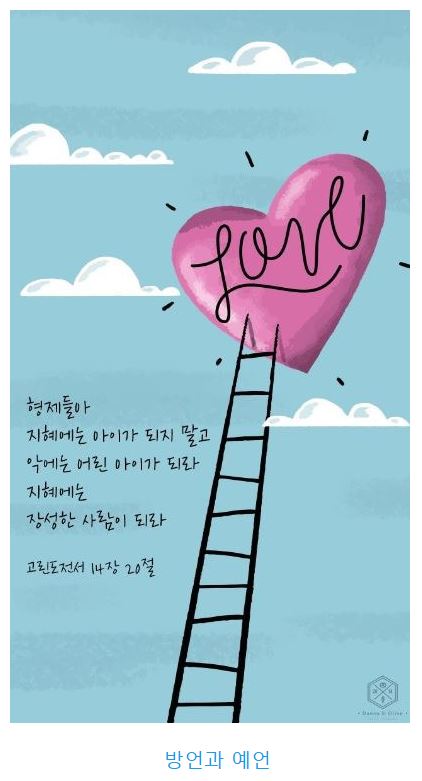 Love
형제들아
지혜에는 아이가 되지 말고
악에는 어린 아이가 되라
지혜에는
장성한 사람이 되라
고린도전서 14장 20절
방언과 예언